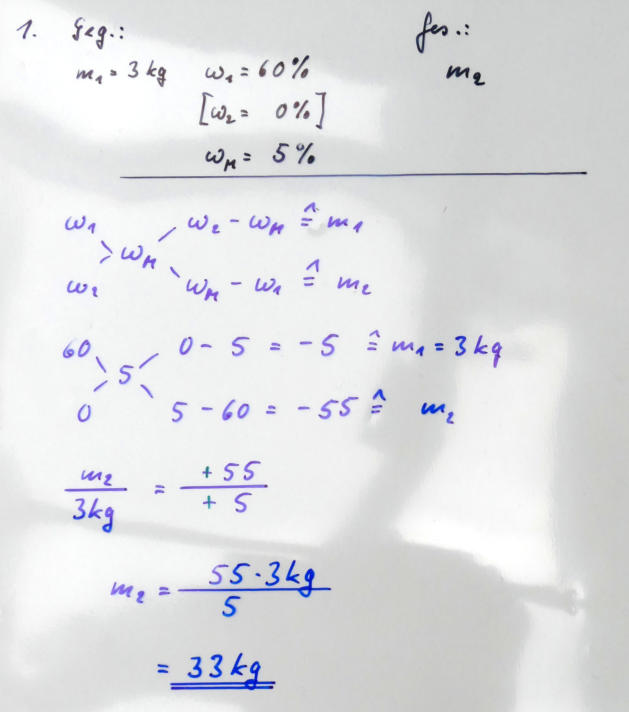 1. Geg.: Ges.:
m₁ = 3 kg ω₁ = 60% m₂
[ω₂ = 0%]
ω_M = 5%
ω₁ ω₂ - ω_M ≙ m₁
ω_M
ω₂ ω_M - ω₁ ≙ m₂
60 0 - 5 = -5 ≙ m₁ = 3 kg
5
0 5 - 60 = -55 ≙ m₂
m₂ / 3kg = +55 / +5
m₂ = 55 · 3 kg / 5
= 33 kg